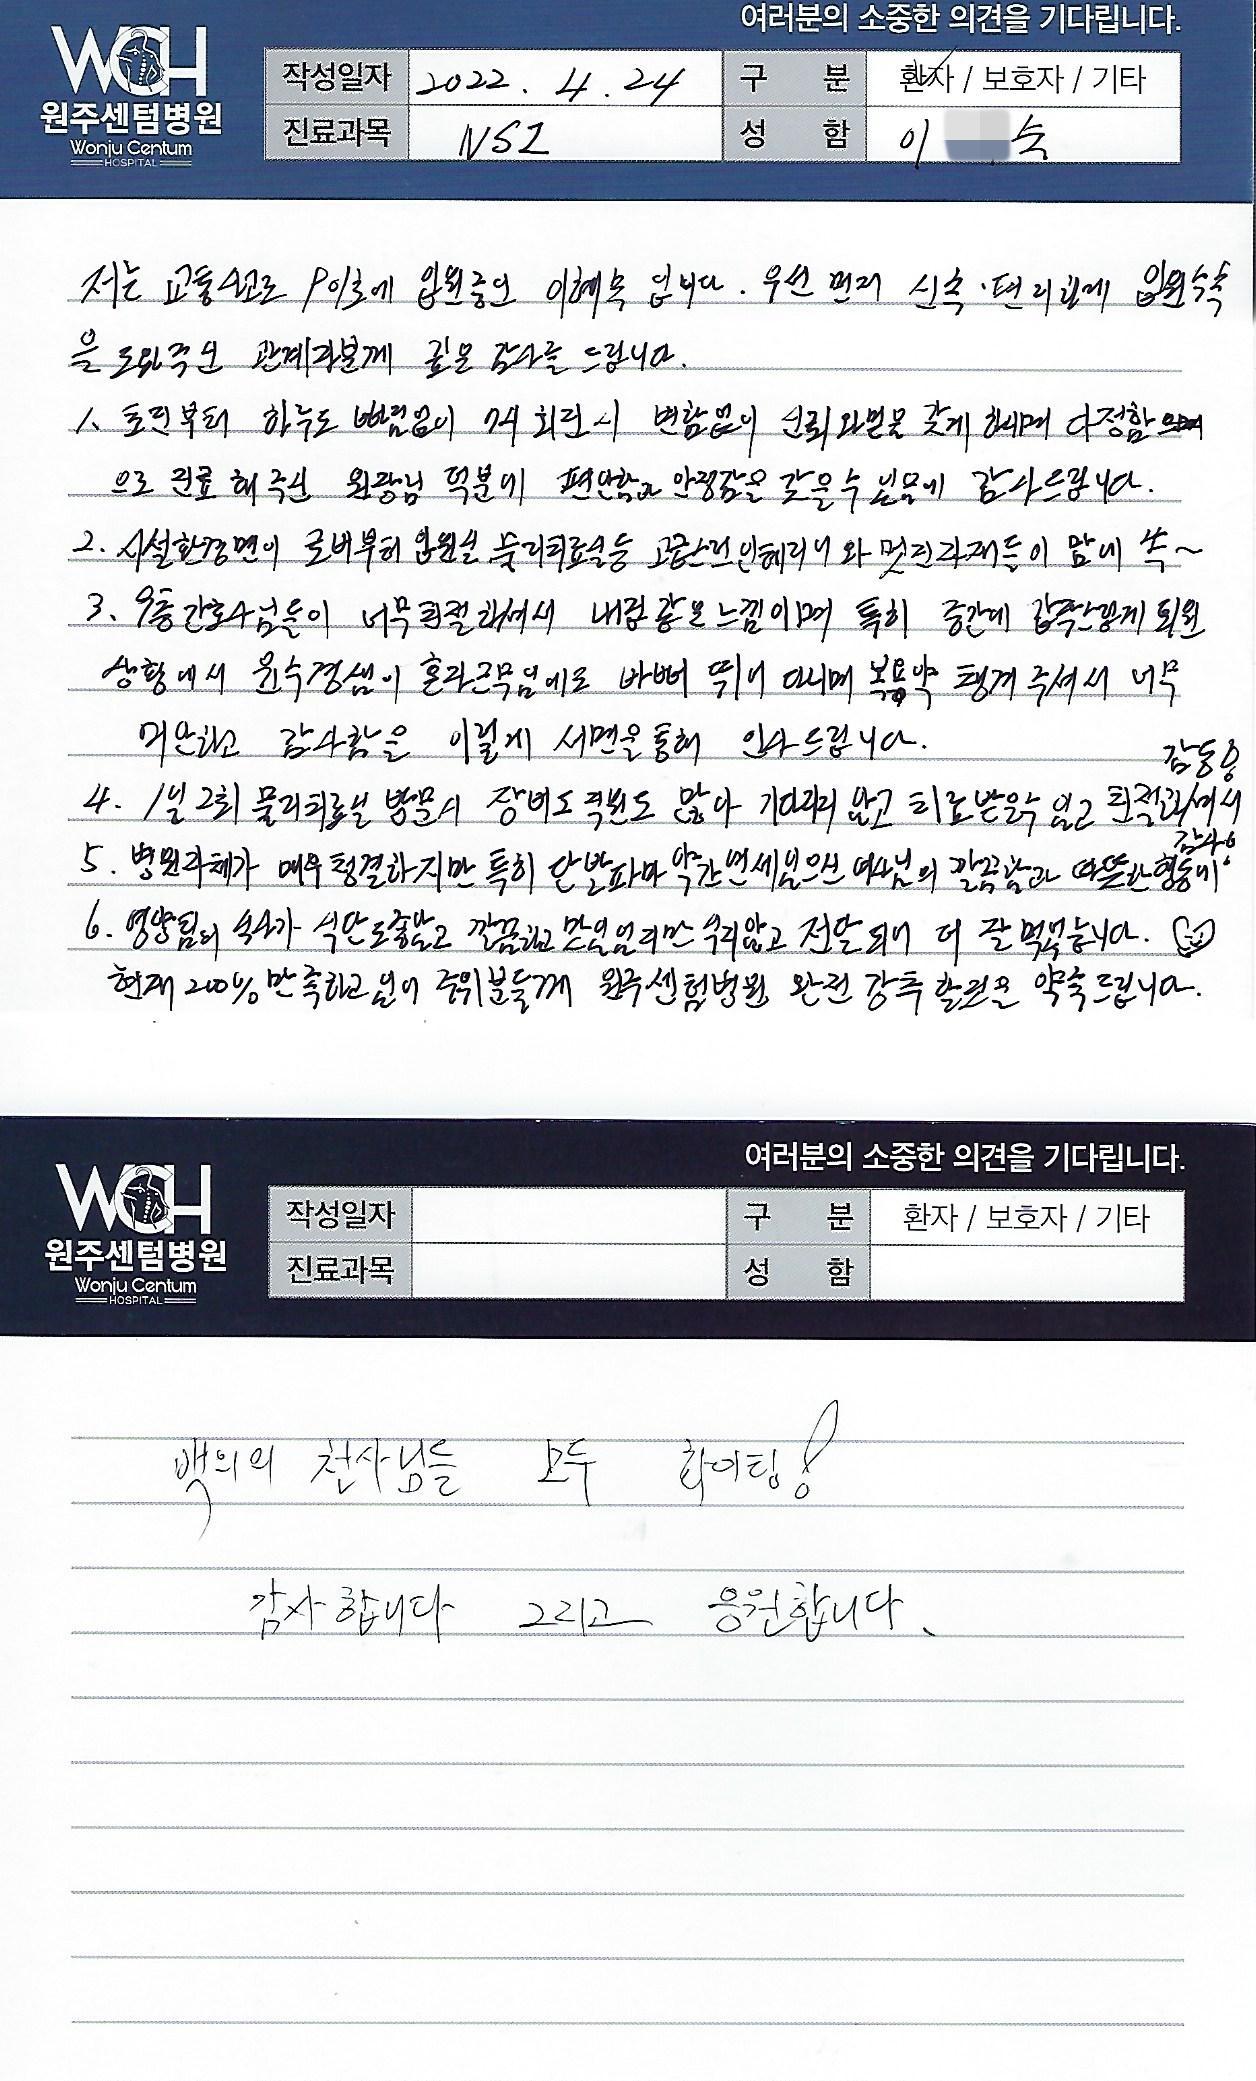 여러분의 소중한 의견을 기다립니다.
WCH
원주센텀병원
Wonju Centum
HOSPITAL
작성일자 2022. 4. 24 구 분 환자 / 보호자 / 기타
진료과목 NS2 성 함 이 숙
저는 교통사고로 입원중인 이혜숙 입니다. 우선 먼저 신속·편리하게 입원수속
을 도와주신 관계자분께 깊은 감사를 드립니다.
1. 초진부터 하루도 빠짐없이 7시 회진시 변함없이 신뢰와믿음 갖게 하세며 다정함
으로 진료 해 주신 원장님 덕분에 편안함과 안정감을 갖을수 있음에 감사드립니다.
2. 시설환경면이 로비부터 입원실, 물리치료실등 고급스런인테리어와 멋진자재들이 맘에 쏙~
3. 9층간호사님들이 너무친절하셔서 내집같은느낌이며 특히 중간에 갑작스럽게 퇴원
상황에서 윤수경샘이 혼자근무임에도 바삐 뛰어 다니며 복용약 챙겨주셔서 너무
미안하고 감사함을 이렇게 서면을통해 인사드립니다.
4. 1일 2회 물리치료실 방문시 장비도 직원도 많아 기다리지 않고 치료받을수 있고 친절하셔서
감동용
5. 병원자체가 매우청결하지만 특히 단발파마 약간 연세있으신 여사님의 깔끔함과 따뜻한행동에
감사용
6. 영양팀의 식사가 식단도좋았고 깔끔하고 맛있 전달되어 더 잘먹었습니다.
현재 200% 만족하고 있어 주위분들께 원주센텀병원 완전 강추 할것을 약속드립니다.
여러분의 소중한 의견을 기다립니다.
WCH
원주센텀병원
Wonju Centum
HOSPITAL
작성일자 구 분 환자 / 보호자 / 기타
진료과목 성 함
백의의 천사님들 모두 화이팅!
감사합니다 그리고 응원합니다.